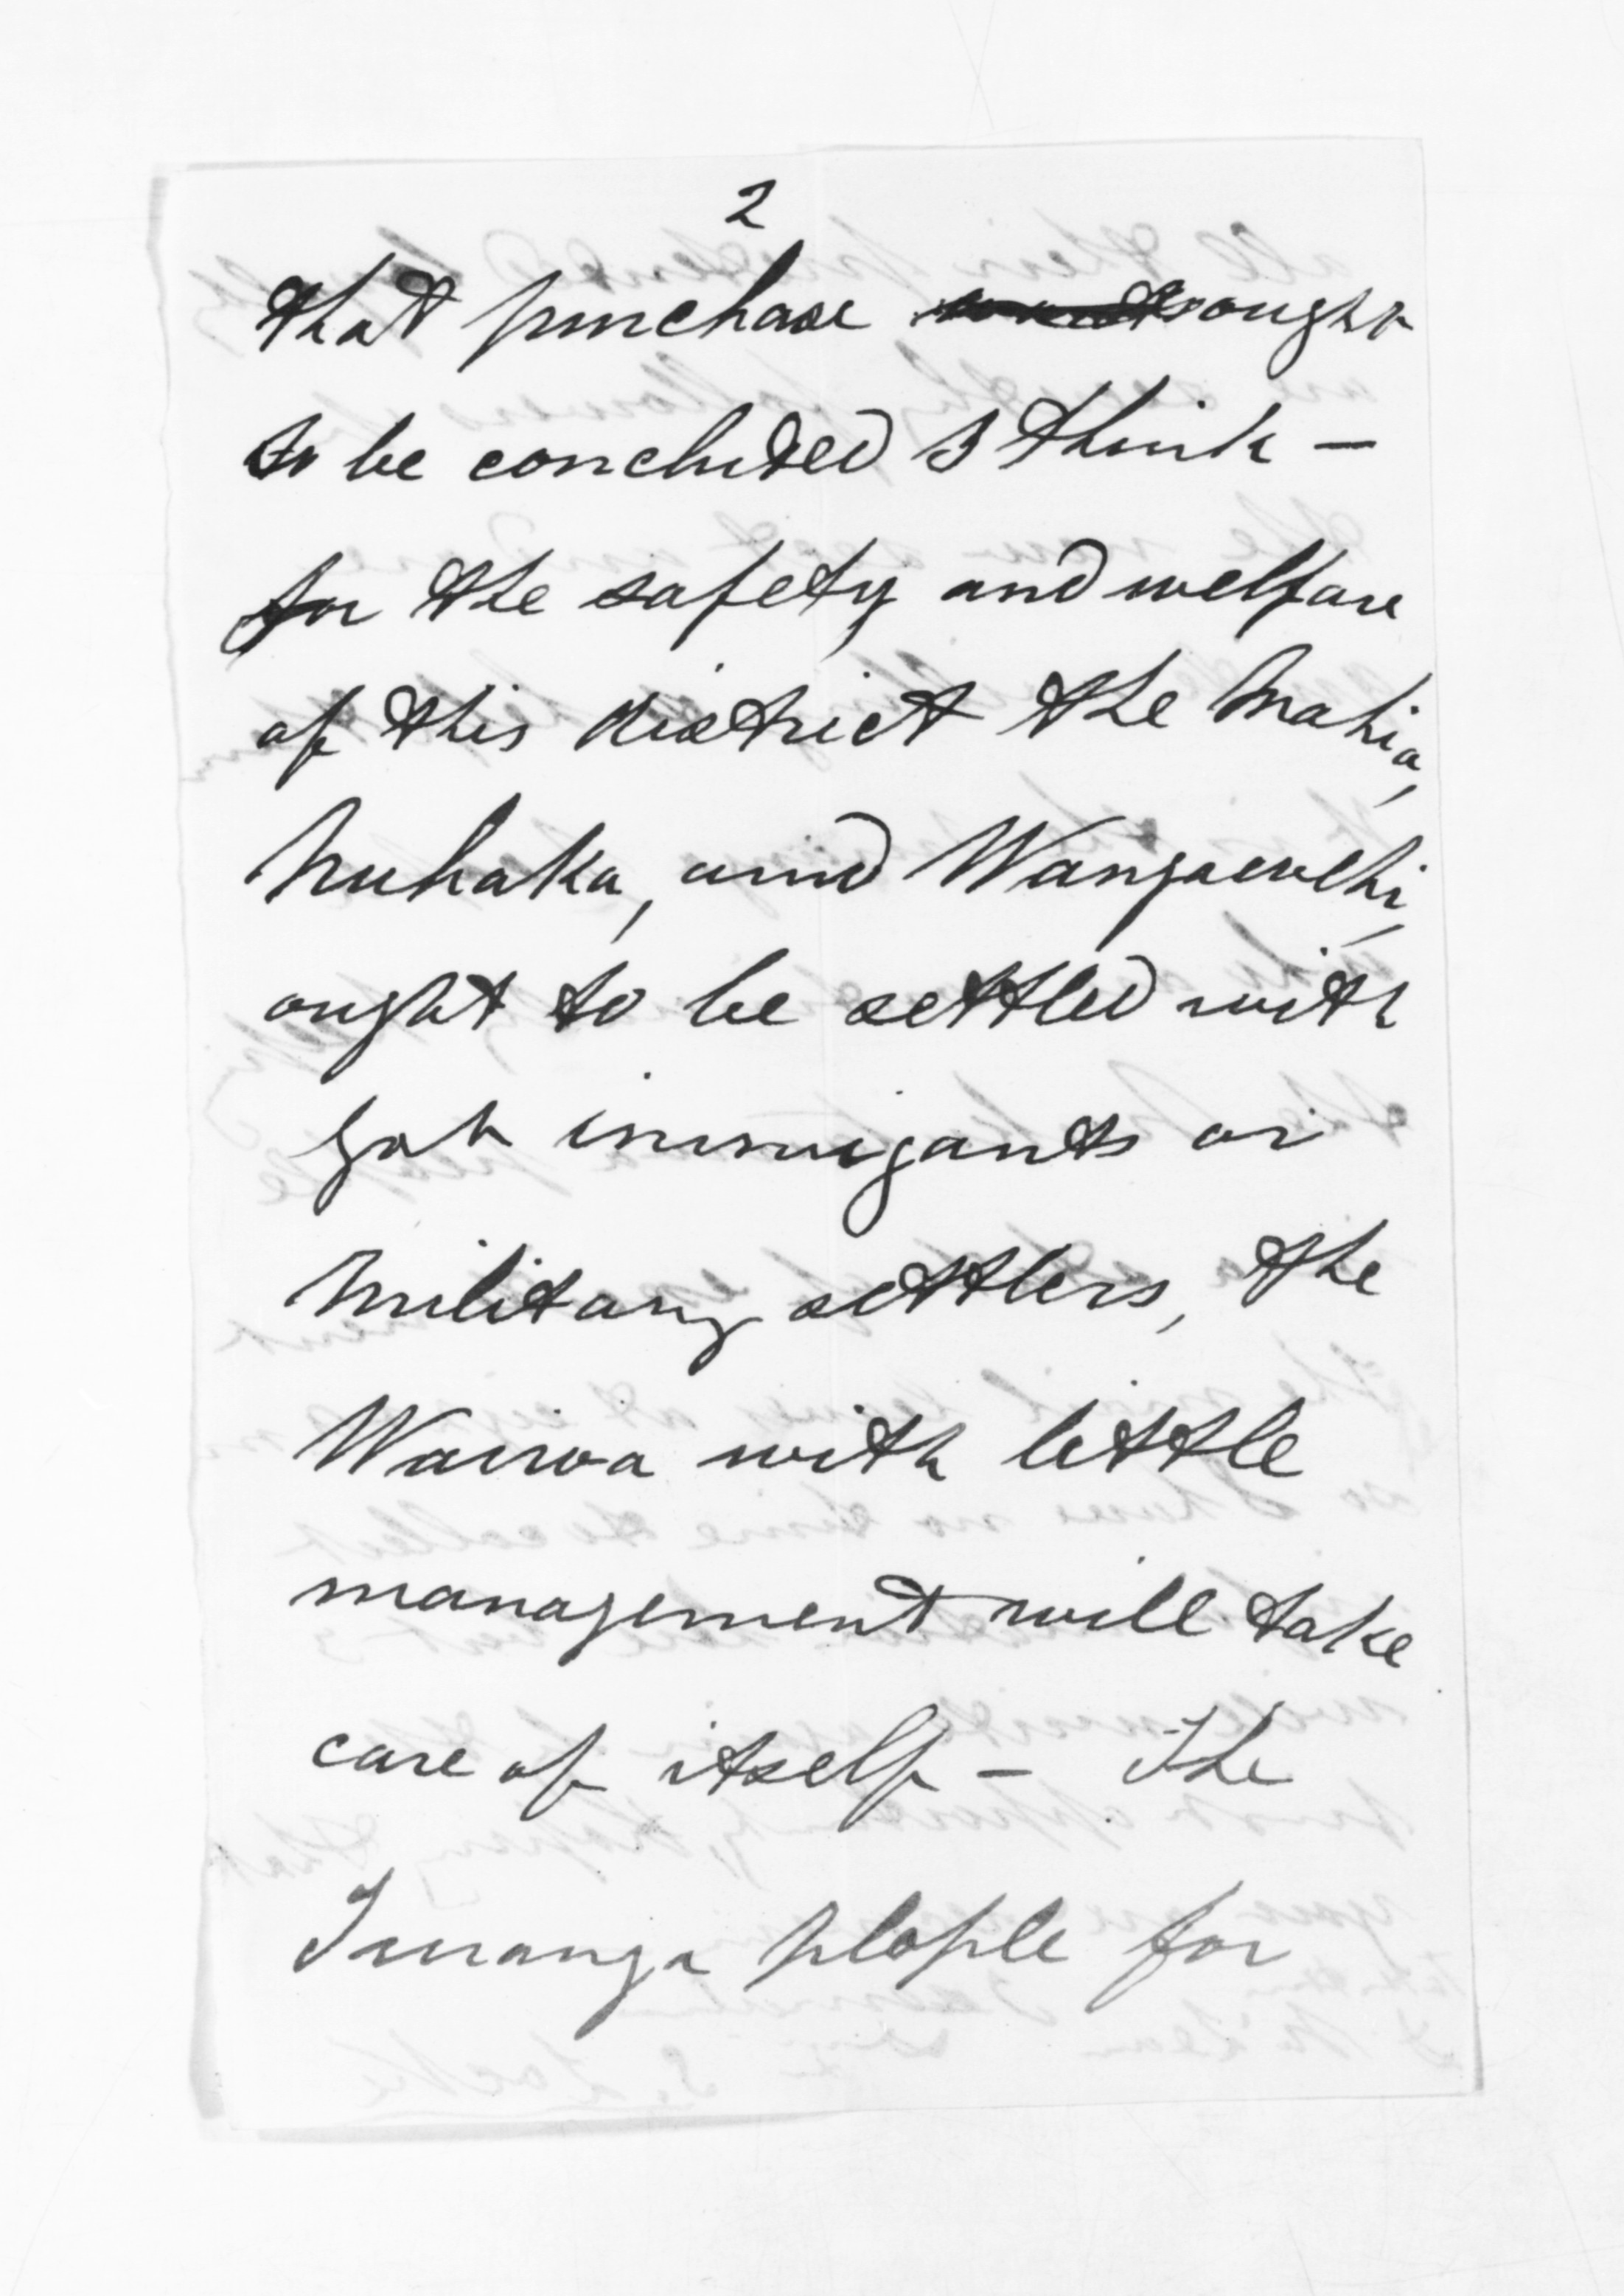 2
that purchase ought
to be concluded I think —
for the safety and welfare
of this district the Mahia,
Nuhaka, and Wangawehi,
ought to be settled with
immigants or
Military settlers, the
Wairoa with little
management will take
care of itself — The
Turanga people for